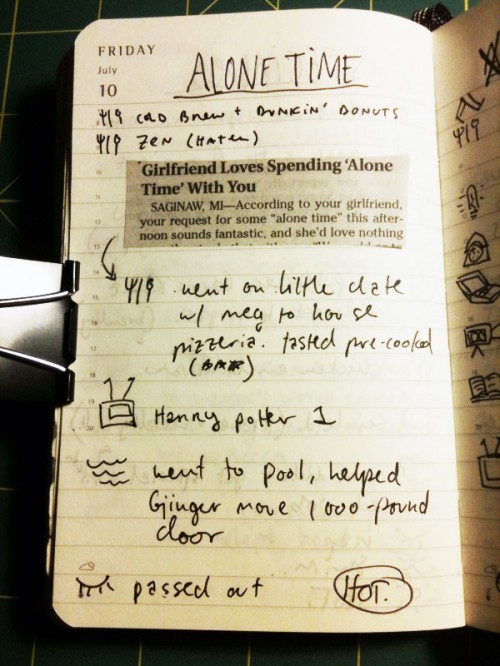 FRIDAY
July
10
ALONE TIME
COLD BREW + DUNKIN' DONUTS
ZEN (HATEN)
Girlfriend Loves Spending 'Alone
Time' With You
SAGINAW, MI—According to your girlfriend,
your request for some "alone time" this after-
noon sounds fantastic, and she'd love nothing
went on little date
w/ meg to house
pizzeria. tasted pre-cooked
(BAR)
Harry potter 1
went to pool, helped
Ginger move 1000-pound
door
passed out
HOT.